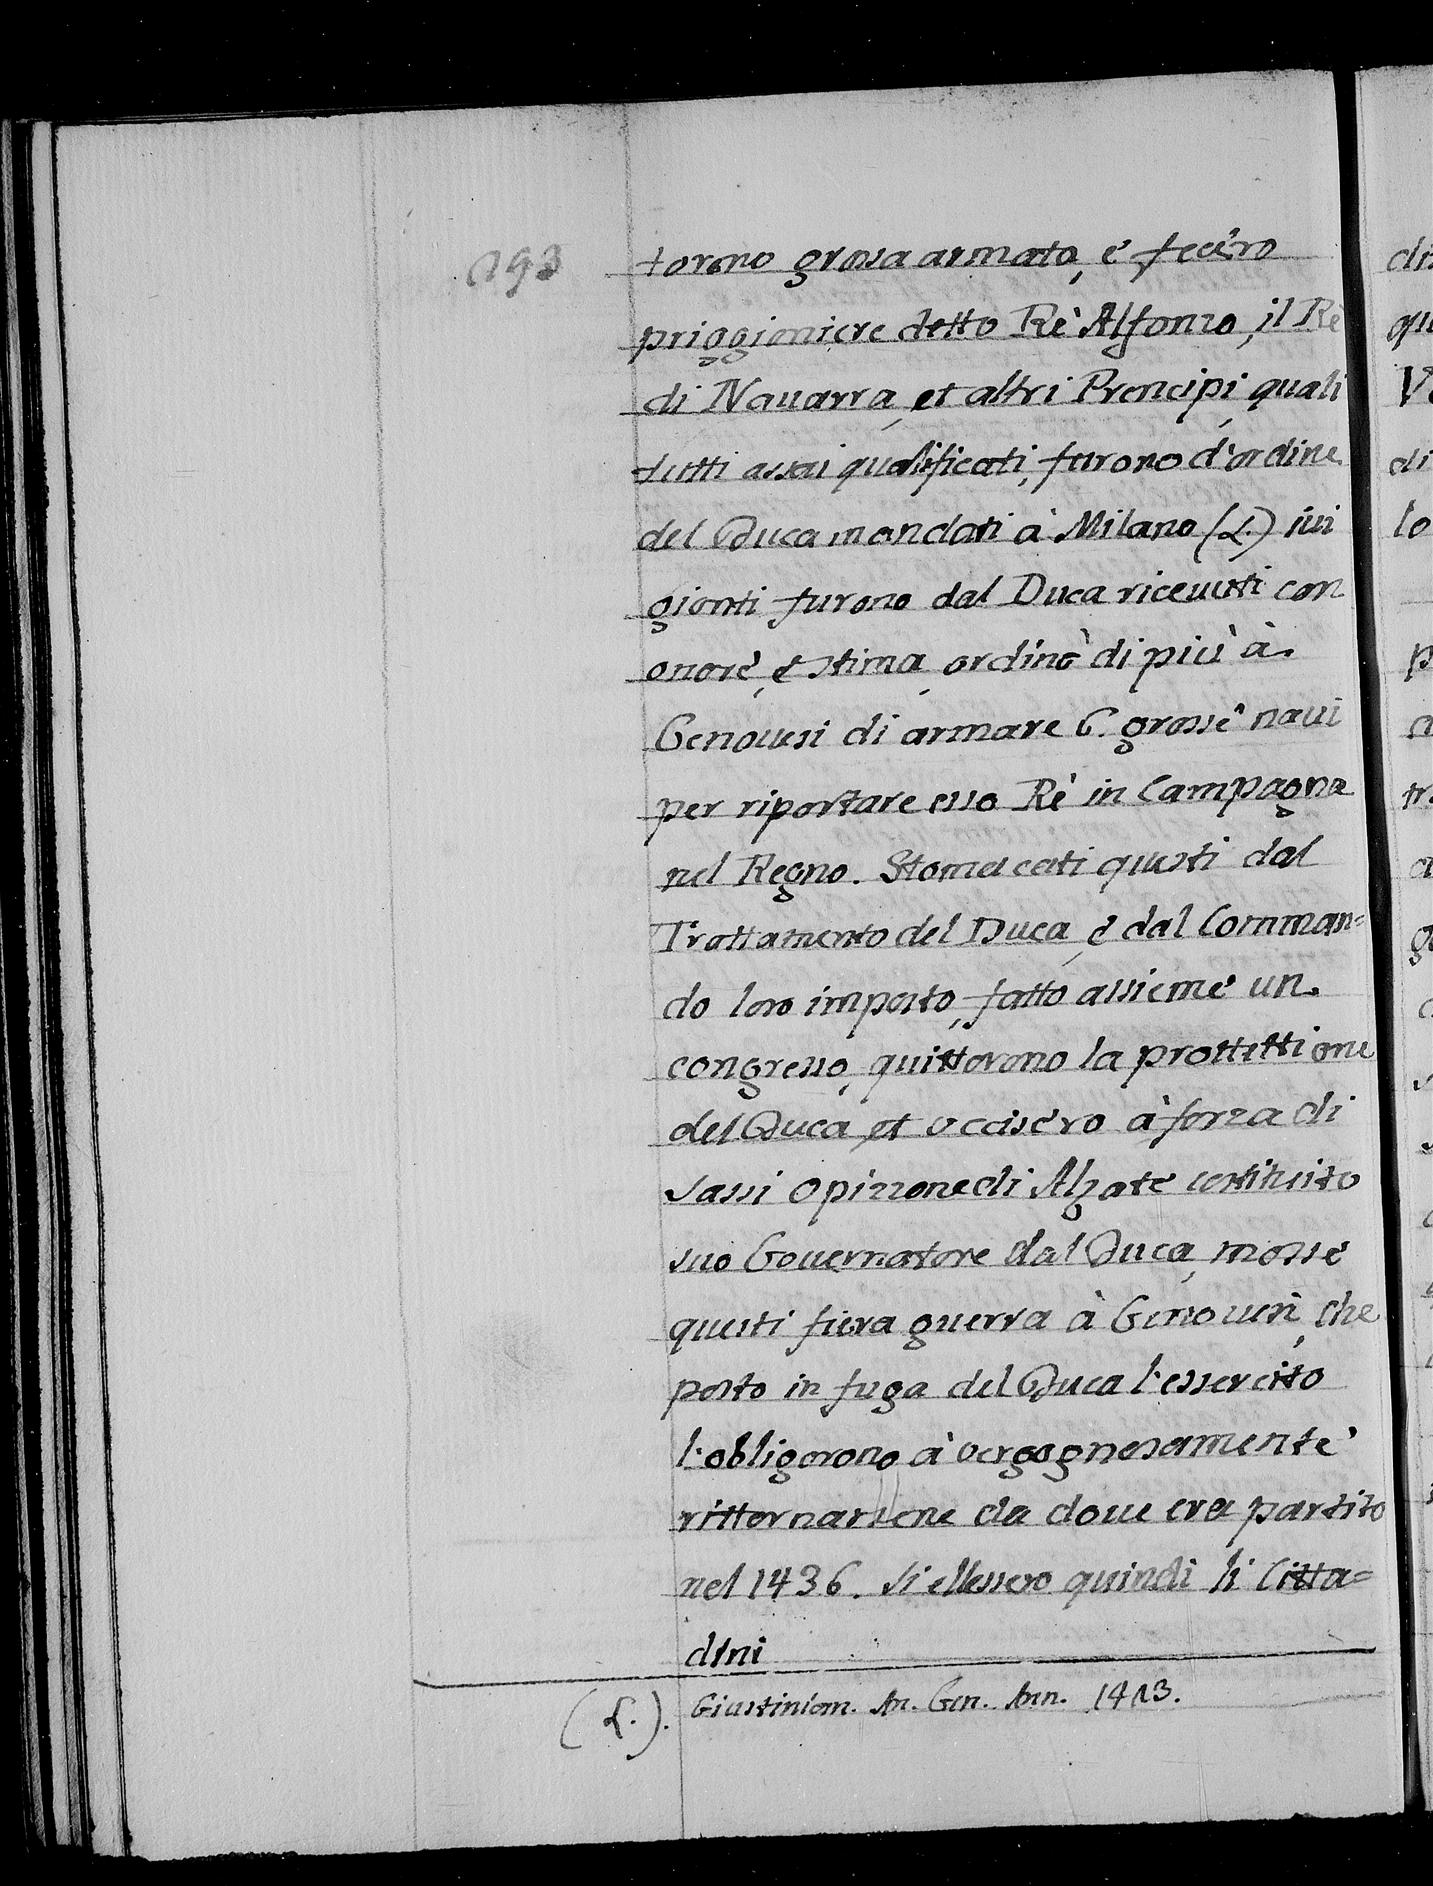 193
torono grosa armata, è fecero
priggioniere detto Rè Alfonzo, il Rè
di Nauarra, et altri Prencipi, quali
tutti assai qualificati, furono d'ordine
del Duca mandati à Milano (L.) iui
gionti furono dal Duca riceuuti con
onore, è stima, ordinò di più à
Genouesi di armare 6. grosse naui
per riportare esso Rè in Campagna
nel Regno. Stomacati questi dal
Trattamento del Duca, è dal Comman=
do loro imposto, fatto assieme un
congresso, quittorono la prottettione
del Duca, et occisero à forza di
sassi Opizzone di Alzate costituito
suo Gouernatore dal Duca, mosse
questi fiera guerra à Genouesi, che
posto in fuga del Duca l'essercitto
l'obligorono à vergognosamente
rittornarsene da doue era partito
nel 1436. Si ellessero quindi li Citta=
dini
(L.). Giustinian. An. Gen. Ann. 1413.